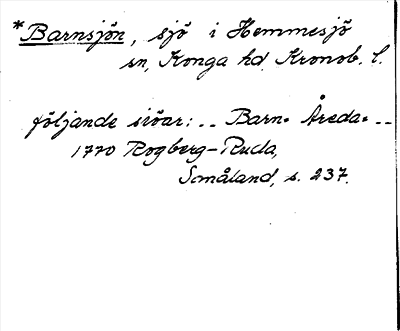 *Barnsjön, sjö i Hemmesjö
sn, Konga hd, Kronob. l.
följande siöar: _ _ Barn= Åreda= _ _
1770 Rogberg-Ruda,
Småland, s. 237.